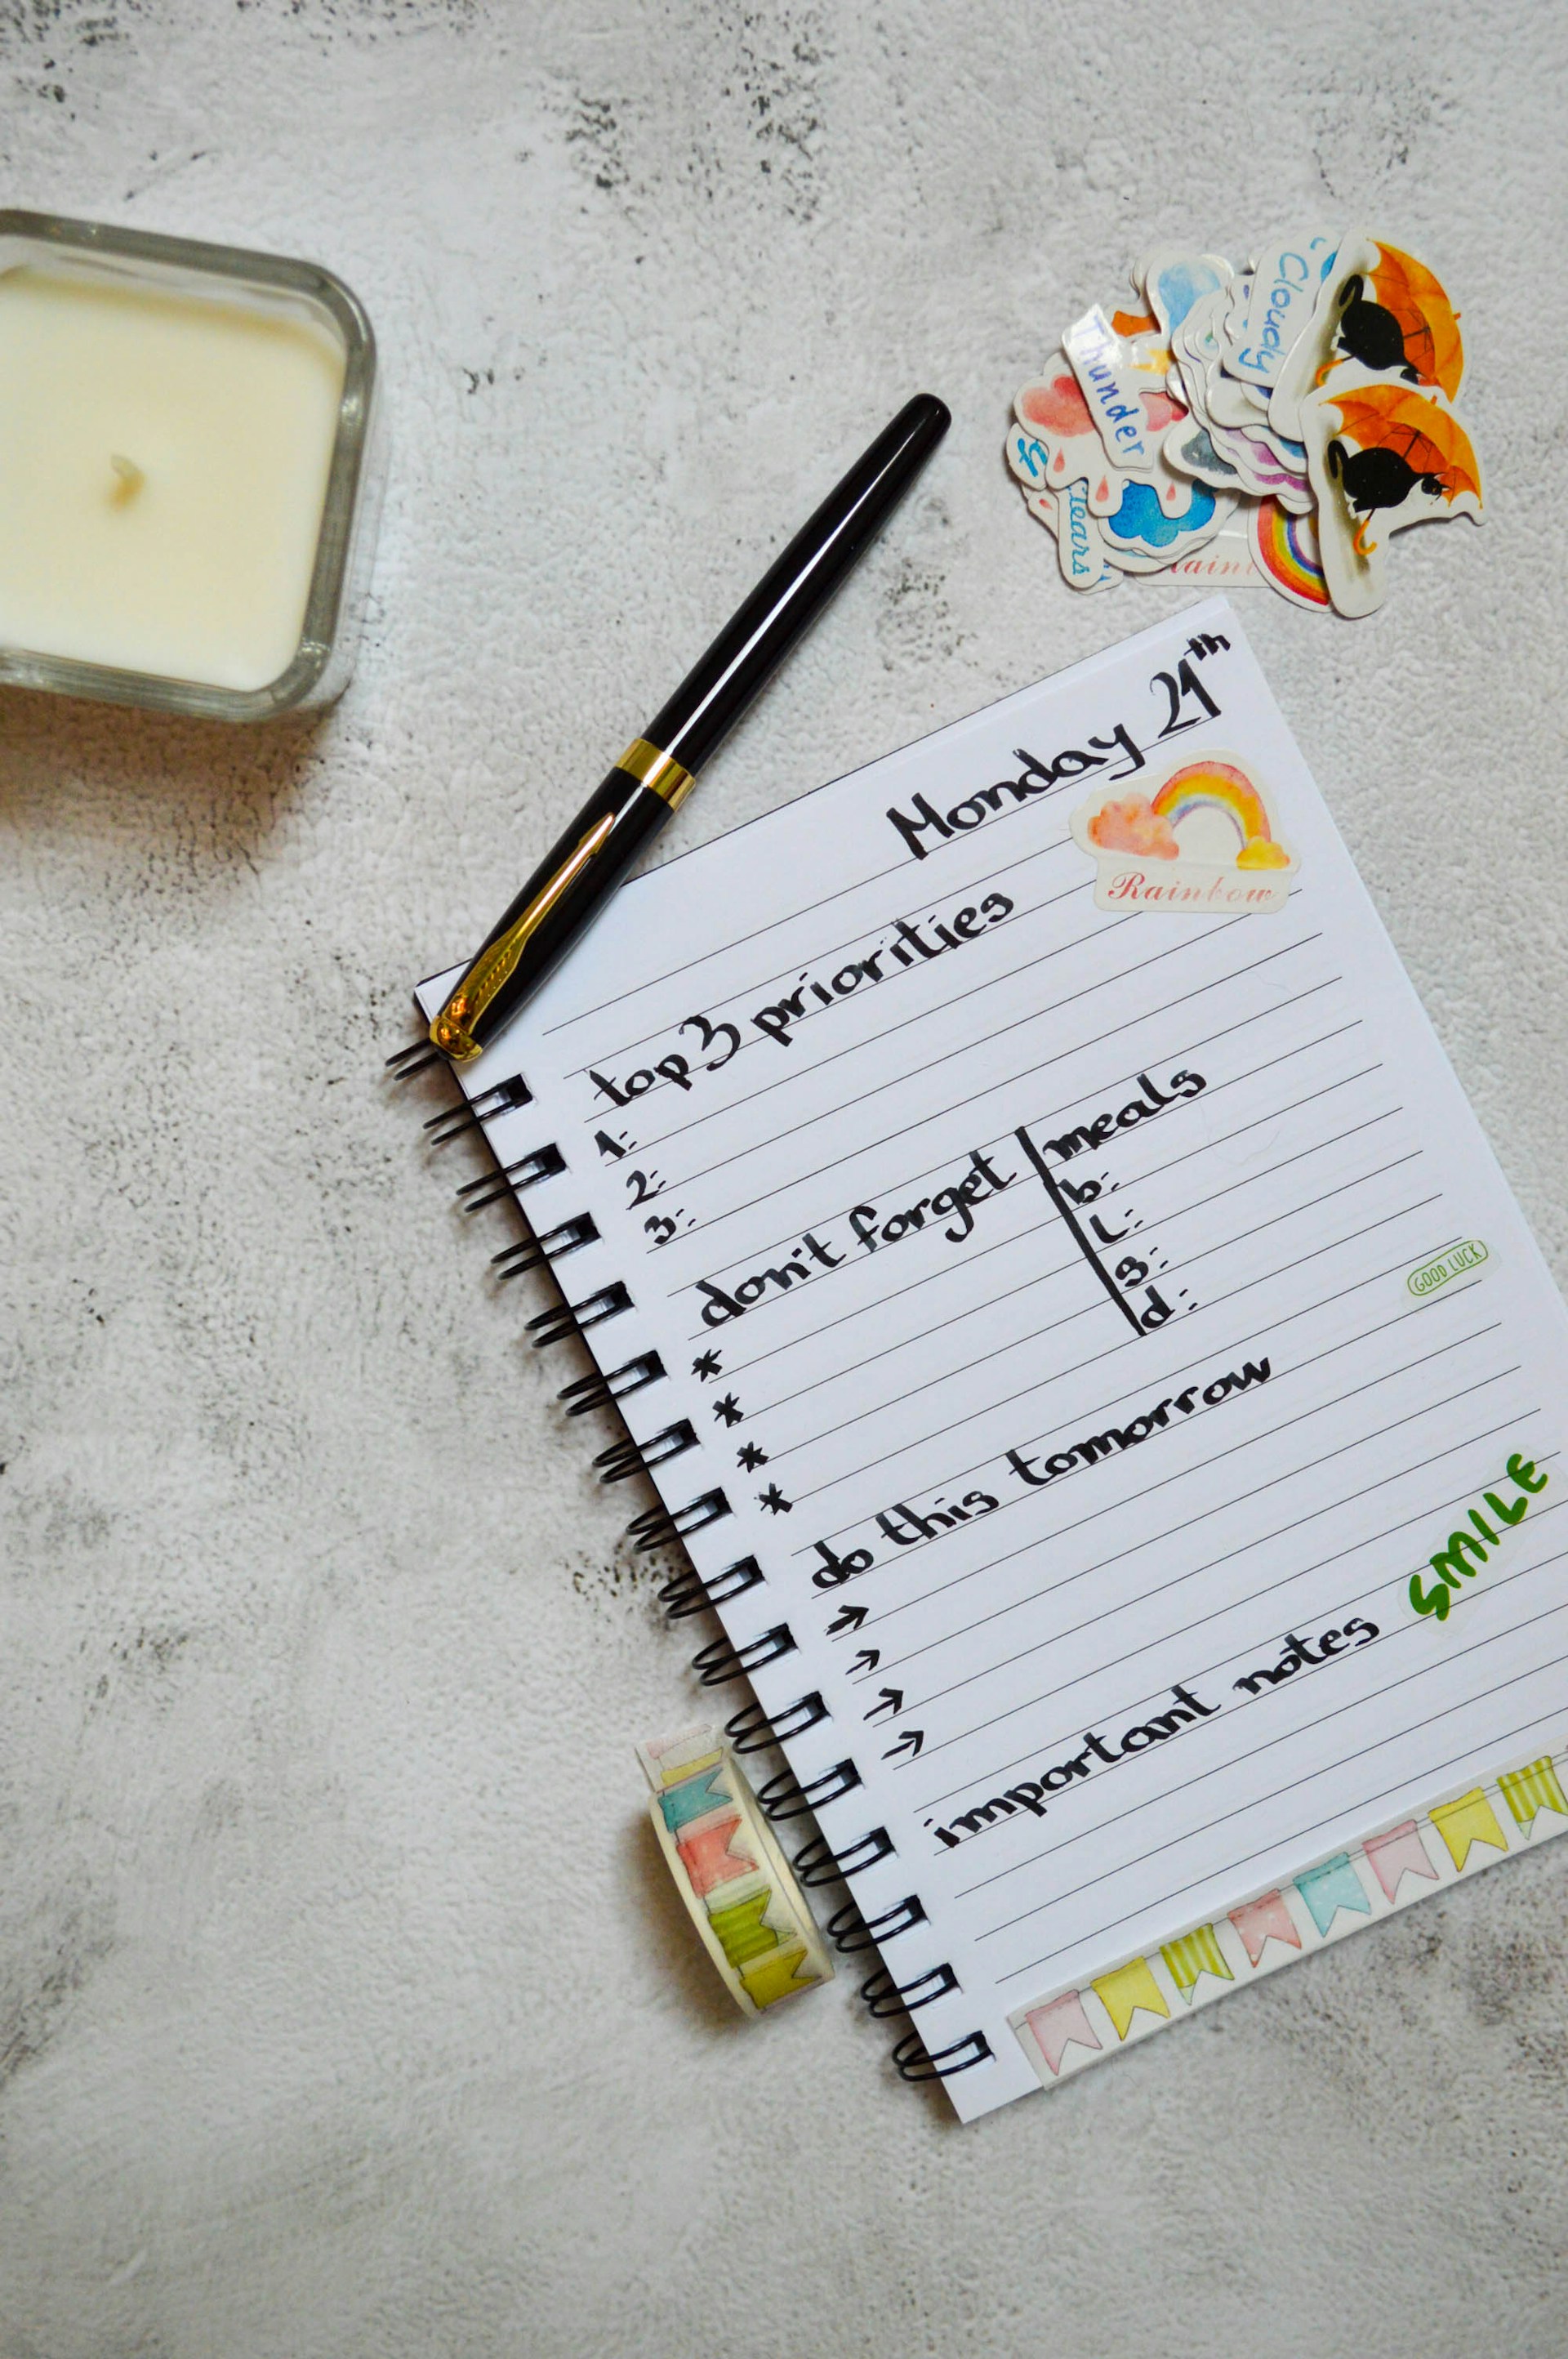 Cloudy
Thunder
Tears
Monday 21th
Rainbow
top 3 priorities
1:
2:
3:
don't forget
*
*
*
*
meals
b:
L:
s:
d:
GOOD LUCK
do this tomorrow
→
→
→
→
important notes
SMILE